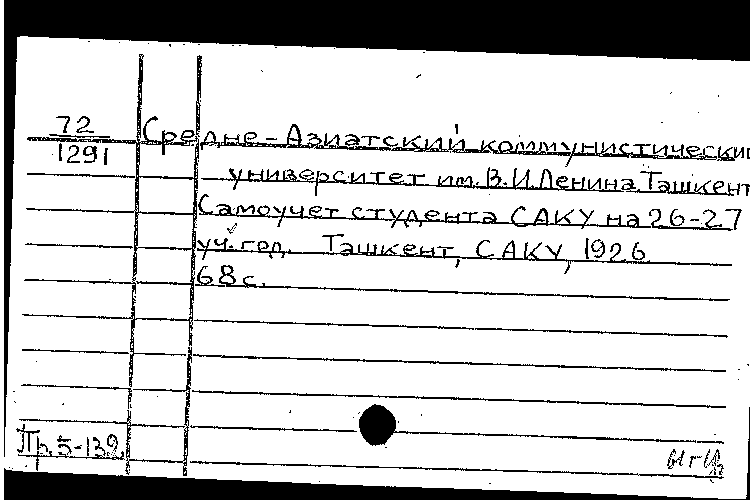 72
1291
Средне-Азиатский коммунистический
университет им. В.И.Ленина. Ташкент
Самоучет студента САКУ на 26-27
уч. год. Ташкент, САКУ, 1926
68 с.
Пр. 5-132